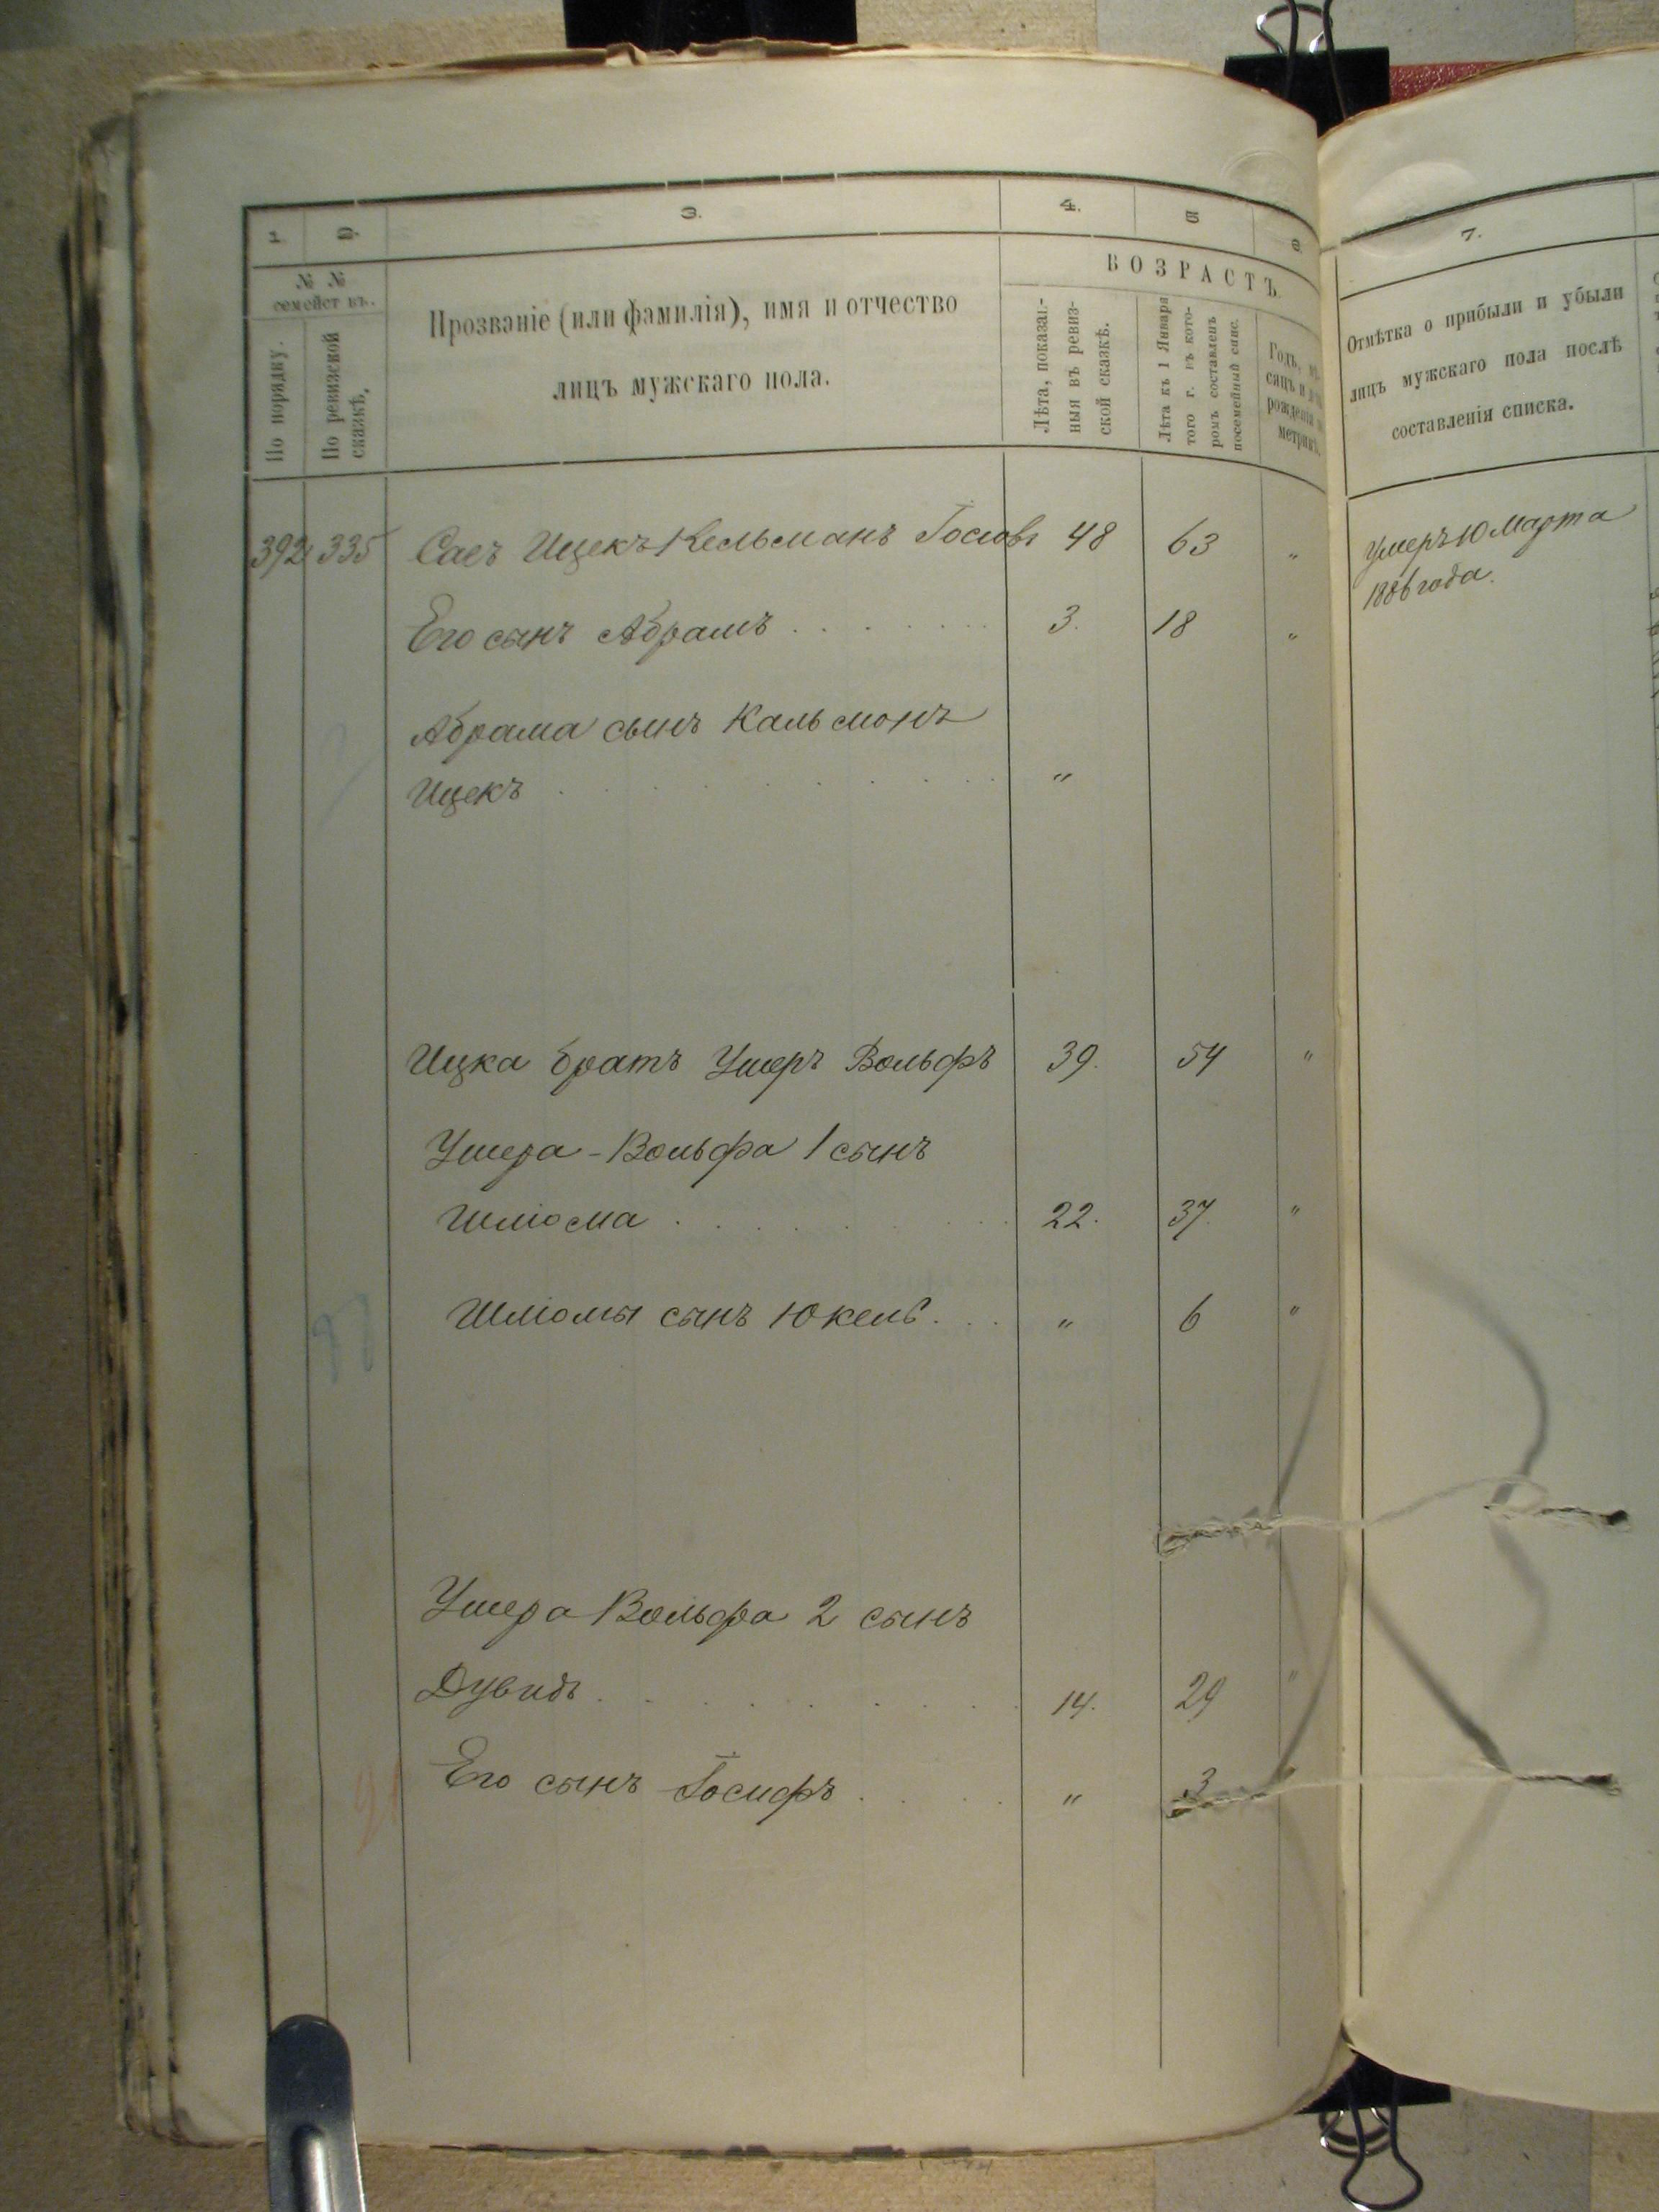 1. 2. 3. 4. 5 6 7.
№ №
семействъ.
По порядку.
По ревизской
сказкѣ.
Прозваніе (или фамилія), имя и отчество
лицъ мужскаго пола.
ВОЗРАСТЪ
Лѣта, показан-
ныя въ ревиз-
ской сказкѣ.
Лѣта къ 1 Января
того г. въ кото-
ромъ составленъ
посемейный спис.
Годъ, мѣ-
сяцъ и
рожденія
метрик.
Отмѣтка о прибыли и убыли
лицъ мужскаго пола послѣ
составленія списка.
392 335 Саеъ Ицекъ Кельманъ Іосiовъ 48 63 "
Умеръ 10 Марта
1886 года.
Его сынъ Абрамъ . . . . . . . 3. 18 "
Абрама сынъ Кальмонъ
Ицекъ . . . . . . . . "
Ицка братъ Умеръ Вольфъ 39. 54 "
Ушера-Вольфа 1 сынъ
Шліома . . . . . . . 22. 37. "
Шліомы сынъ Юкель . . . " 6 "
Ушера Вольфа 2 сынъ
Дувидъ . . . . . . . . 14. 29 "
Его сынъ Іосифъ . . . . " 3